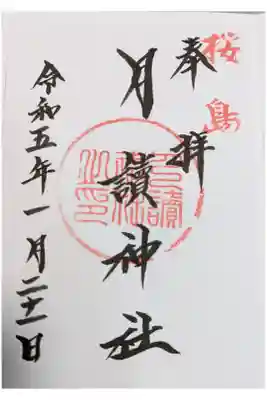 桜島
奉拝
月讀神社
月讀神社之印
令和五年一月二十一日